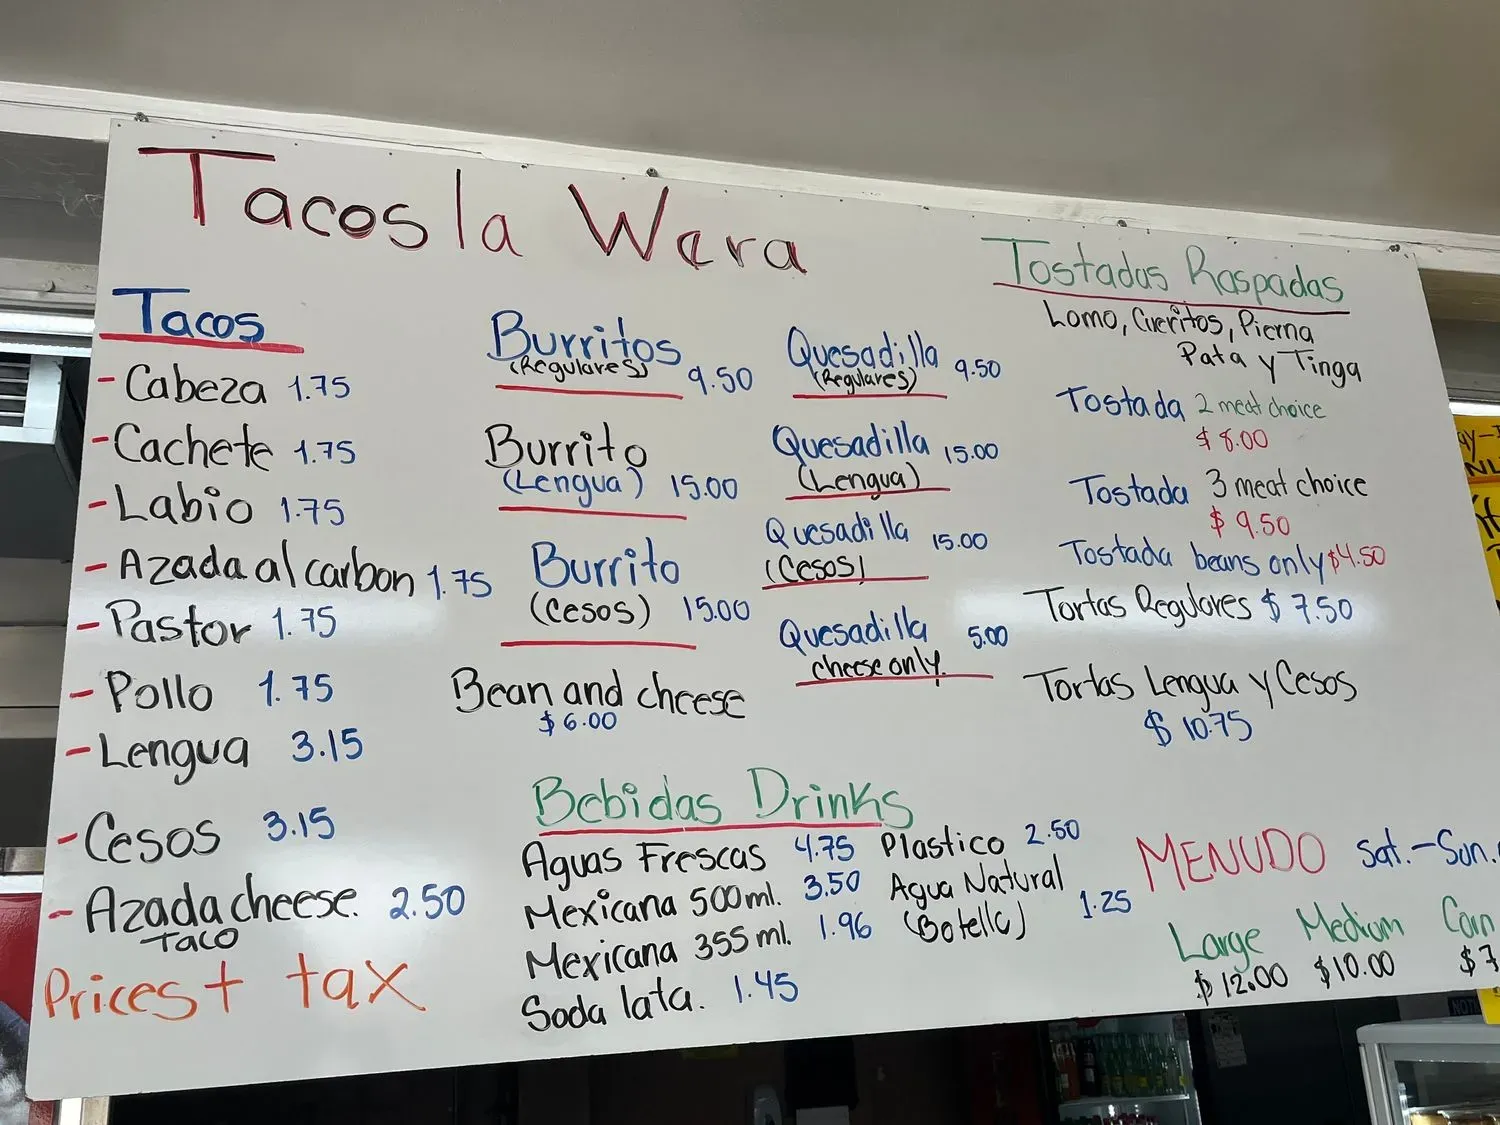 Tacos la Wera
Tacos
- Cabeza 1.75
- Cachete 1.75
- Labio 1.75
- Azada al carbon 1.75
- Pastor 1.75
- Pollo 1.75
- Lengua 3.15
- Cesos 3.15
- Azada cheese. 2.50
Taco
Prices + tax
Burritos
(Regulares) 9.50
Burrito
(Lengua) 15.00
Burrito
(Cesos) 15.00
Bean and cheese
$6.00
Quesadilla
(Regulares) 9.50
Quesadilla 15.00
(Lengua)
Quesadilla 15.00
(Cesos)
Quesadilla 5.00
cheese only.
Tostadas Raspadas
Lomo, Cueritos, Pierna
Pata y Tinga
Tostada 2 meat choice
$8.00
Tostada 3 meat choice
$9.50
Tostada beans only $4.50
Tortas Regulares $7.50
Tortas Lengua y Cesos
$10.75
Bebidas Drinks
Aguas Frescas 4.75
Mexicana 500ml. 3.50
Mexicana 355ml. 1.96
Soda lata. 1.45
Plastico 2.50
Agua Natural
(Botella) 1.25
MENUDO Sat.-Sun.
Large Medium
$12.00 $10.00 $7